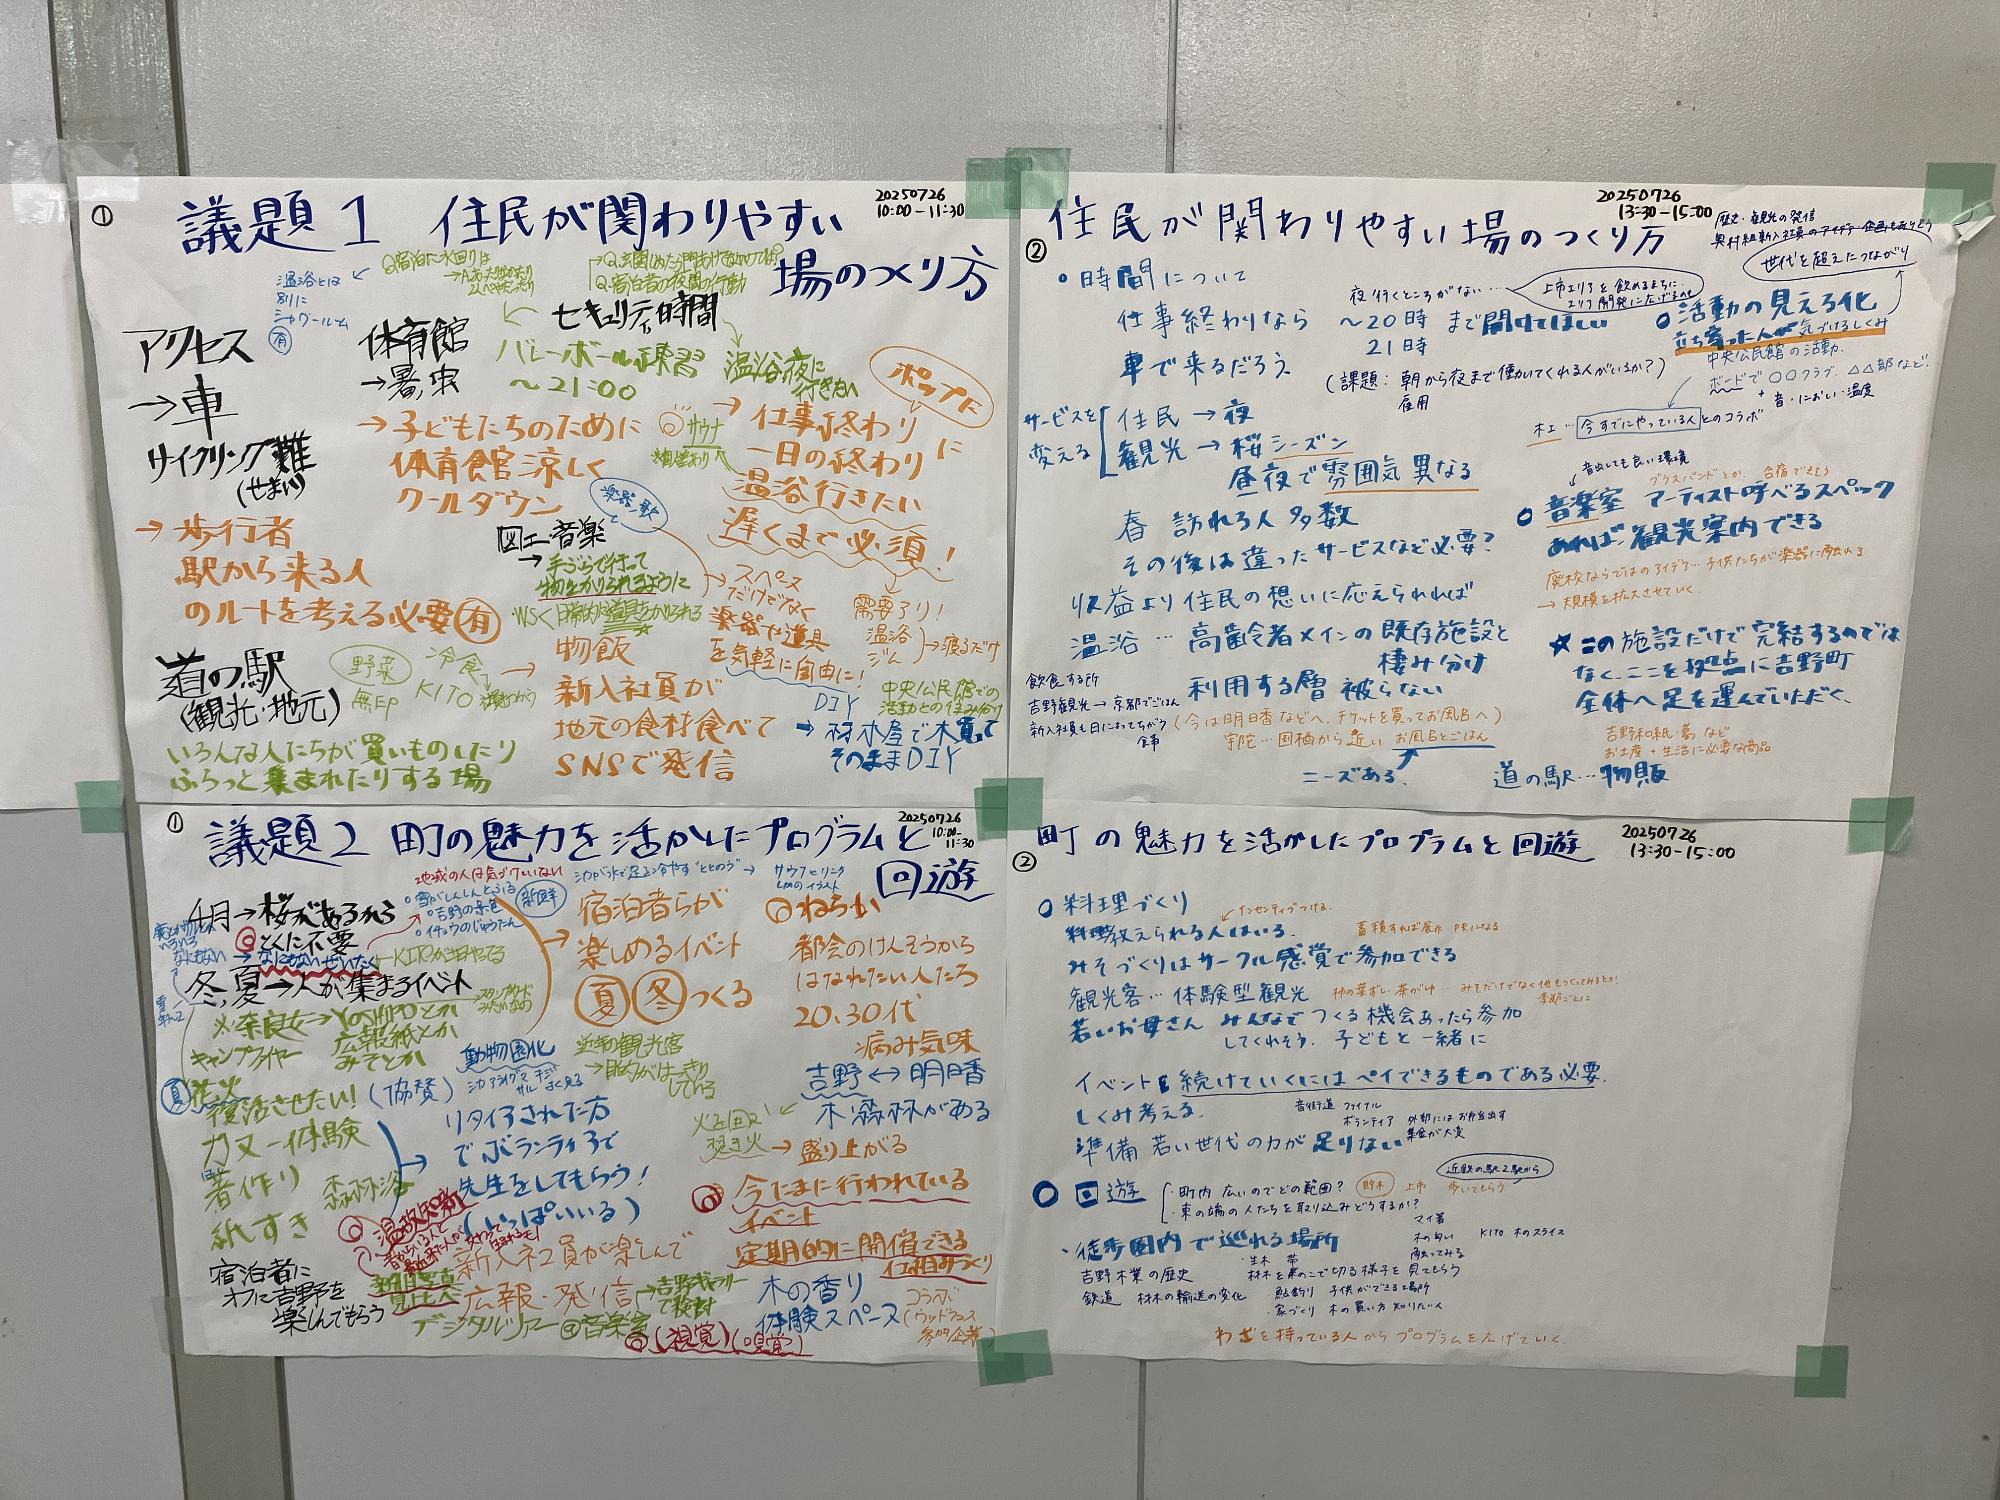 ①
議題1 住民が関わりやすい
場のつくり方
20250726
10:00-11:30
温浴とは
別に
シャワールーム
有
アクセス
→車
サイクリング難
(せまい)
→歩行者
駅から来る人
のルートを考える必要有
体育館
→暑、虫
→子どもたちのために
体育館涼しく
クールダウン
セキュリティ、時間
バレーボール練習
〜21:00
温浴夜に
行きたい
ポップに
→仕事終わりに
一日の終わり
温浴行きたい
遅くまで必須!
サウナ
楽器、歌
図工・音楽
→手ぶらで行って
物をかりられるように
→スペース
だけでなく
楽器や道具
を気軽に自由に!
需要アリ!
温浴
ジム
→寝るだけ
道の駅
(観光・地元)
野菜
無印
冷食
KITO
いろんな人たちが買いものしたり
ふらっと集まれたりする場
→物販
新入社員が
地元の食材食べて
SNSで発信
DIY
→材木屋で木買って
そのままDIY
中央公民館での
活動との住み分け
②
住民が関わりやすい場のつくり方
20250726
13:30-15:00
歴史・観光の発信
世代を超えたつながり
○時間について
仕事終わりなら
車で来るだろう
夜行くところがない…
上市エリアを飲めるまちに
〜20時まで開けてほしい
21時
(課題:朝から夜まで働いてくれる人がいるか?)
雇用
サービスを
変える
住民→夜
観光→桜シーズン
昼夜で雰囲気異なる
春 訪れる人多数
その後は違ったサービスなど必要?
収益より住民の想いに応えられれば
温浴…高齢者メインの既存施設と
棲み分け
利用する層被らない
飲食する所
吉野観光→京都でごはん
新入社員も日によってちがう
食事
(今は明日香などへ、チケットを買ってお風呂へ)
宇陀…国栖から近い お風呂とごはん
ニーズある。
○活動の見える化
立ち寄った人が気づけるしくみ
中央公民館の活動
ボードで○○クラブ、△△部など!
+音・におい・温度
木工…今すでにやっている人とのコラボ
音出しても良い環境
ブラスバンドとか、合宿できそう
○音楽室 アーティスト呼べるスペック
あれば、観光案内できる
廃校ならではのアイデア…子供たちが楽器に触れる
→規模を拡大させていく
★この施設だけで完結するのでは
なく、ここを拠点に吉野町
全体へ足を運んでいただく、
吉野和紙・葛など
お土産+生活に必要な商品
道の駅…物販
①
議題2 町の魅力を活かしたプログラムと
回遊
20250726
10:00-
11:30
4月→桜があるから
とくに不要
なにもないぜいたく
地域の人は気づいていない
○雪がしんしんとふる
○吉野の景色
○イチョウのじゅうたん
新鮮
冬、夏→人が集まるイベント
※奈良女→YOSHIPOとか
広報紙とか
みてとか
キャンプファイヤー
夏 花火
復活させたい!(協賛)
カヌー体験
箸作り
紙すき
森林浴
宿泊者に
オフに吉野を
楽しんでもらう
宿泊者らが
楽しめるイベント
夏冬つくる
動物園化
近年の観光客
→目的がはっきり
している
リタイアされた方
でボランティアで
先生をしてもらう!
(いっぱいいる)
温故知新
新入社員が楽しんで
広報・発信
デジタルツアー@音楽室
(視覚)(嗅覚)
◎ねらい
都会のけんそうから
はなれたい人たち
20、30代
病み気味
吉野↔明日香
木・森林がある
火を囲む
焚き火
→盛り上がる
今たまに行われている
イベント
定期的に開催できる
仕組みづくり
木の香り
体験スペース
コラボ
②
町の魅力を活かしたプログラムと回遊
20250726
13:30-15:00
○料理づくり
インセンティブつける
料理教えられる人はいる。
蓄積すれば展示 PRになる
みそづくりはサークル感覚で参加できる
観光客…体験型観光
季節ごとに
若いお母さん みんなでつくる機会あったら参加
してくれそう。子どもと一緒に
イベントを続けていくにはペイできるものである必要。
しくみ考える。
音街道 ファイナル
ボランティア 外部にはお弁当出す
集金が大変
準備 若い世代の力が足りない
○回遊
・町内広いのでどの範囲?
・東の端の人たちを取り込みどうするか?
上市
歩いてもらう
近鉄の駅2駅から
マイ箸
木の匂い
触ってみる
KITO 木のスライス
・徒歩圏内で巡れる場所
吉野木業の歴史
鉄道 材木の輸送の変化
・鮎釣り 子供ができる場所
・家づくり 木の買い方知りたい人
わざを持っている人からプログラムを広げていく。